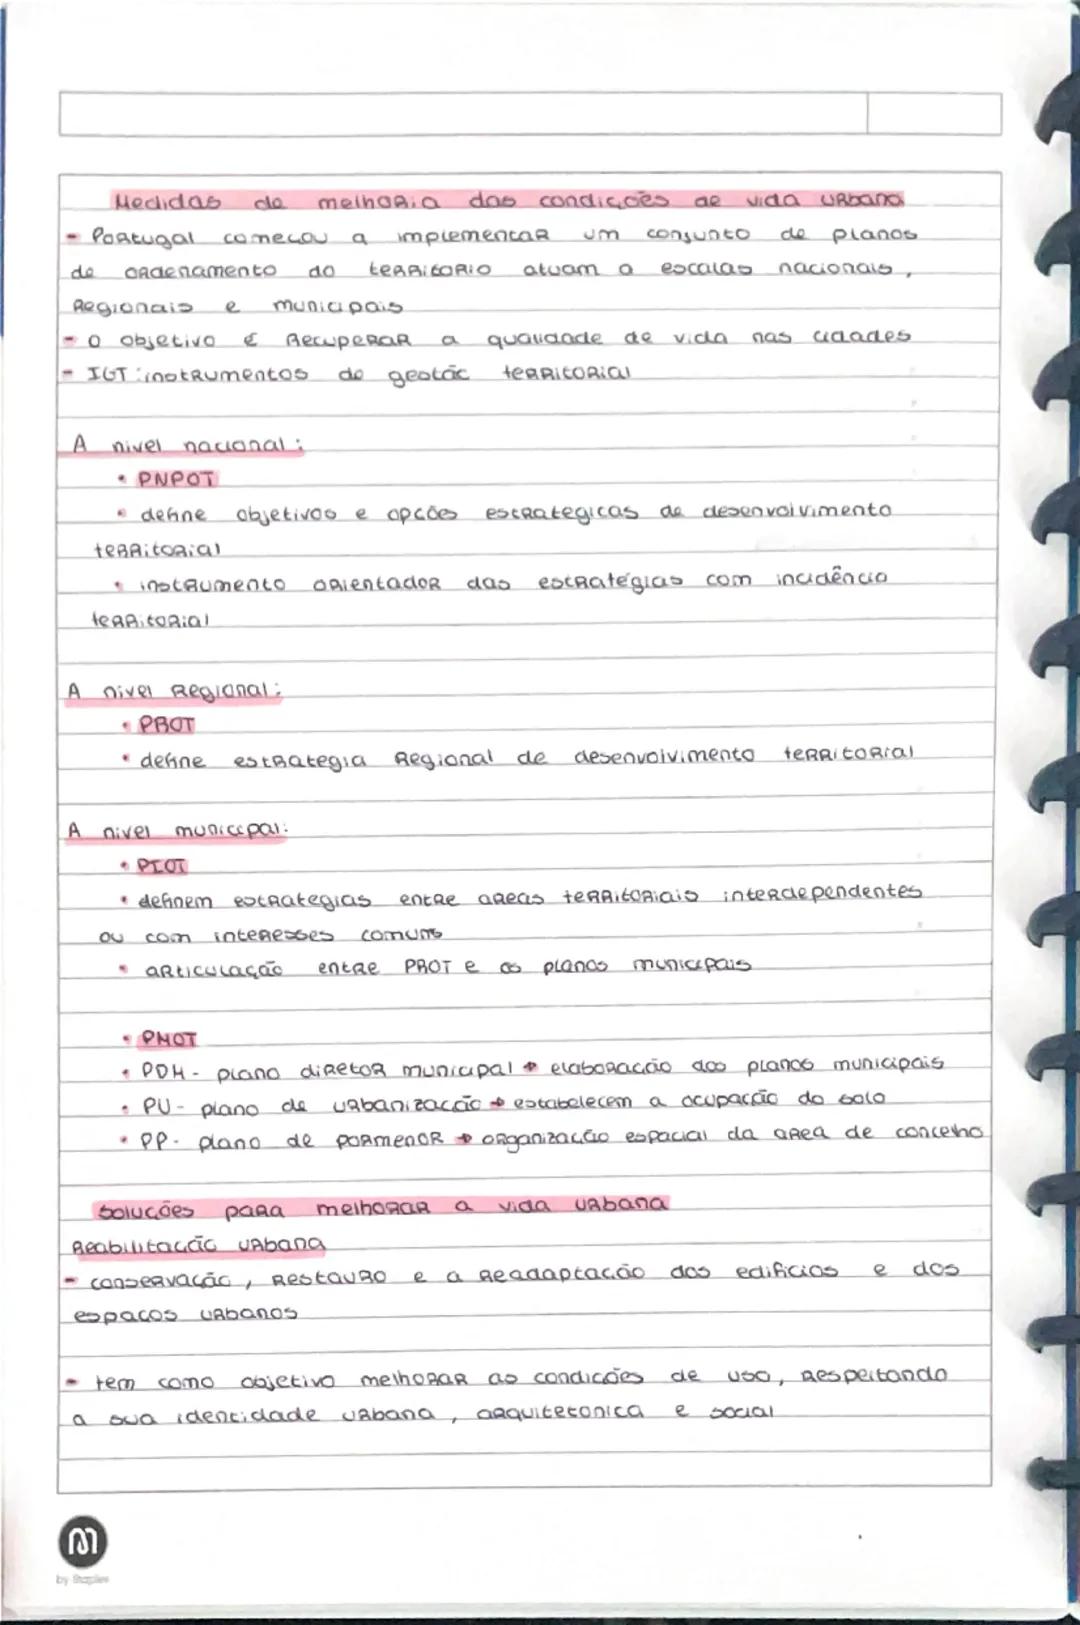 Medidas de melhoria das condições de vida urbana
- Portugal começou a implementar um conjunto de planos
de ordenamento do territorio atuam a escalas nacionais,
Regionais e municipais
- O objetivo é Recuperar a qualidade de vida nas cidades
- IGT: instrumentos de gestão territorial
A nivel nacional:
• PNPOT
• define objetivos e opções estrategicas de desenvolvimento
territorial
• instrumento orientador das estratégias com incidência
territorial
A nivel Regional:
• PROT
• define estrategia Regional de desenvolvimento territorial
A nivel municipal:
• PIOT
• definem estrategias entre areas territoriais interdependentes
ou com interesses comuns
• articulação entre PROT e os planos municipais
• PMOT
• PDM - plano diretor municipal → elaboração dos planos municipais
• PU - plano de urbanização → estabelecem a ocupação do solo
• PP - plano de pormenor → organização espacial da area de concelho
Soluções para melhorar a vida urbana
Reabilitação urbana
- conservação, Restauro e a Readaptação dos edificios e dos
espaços urbanos
- tem como objetivo melhorar as condições de uso, Respeitando
a sua identidade urbana, arquitetonica e social
M
by Staples